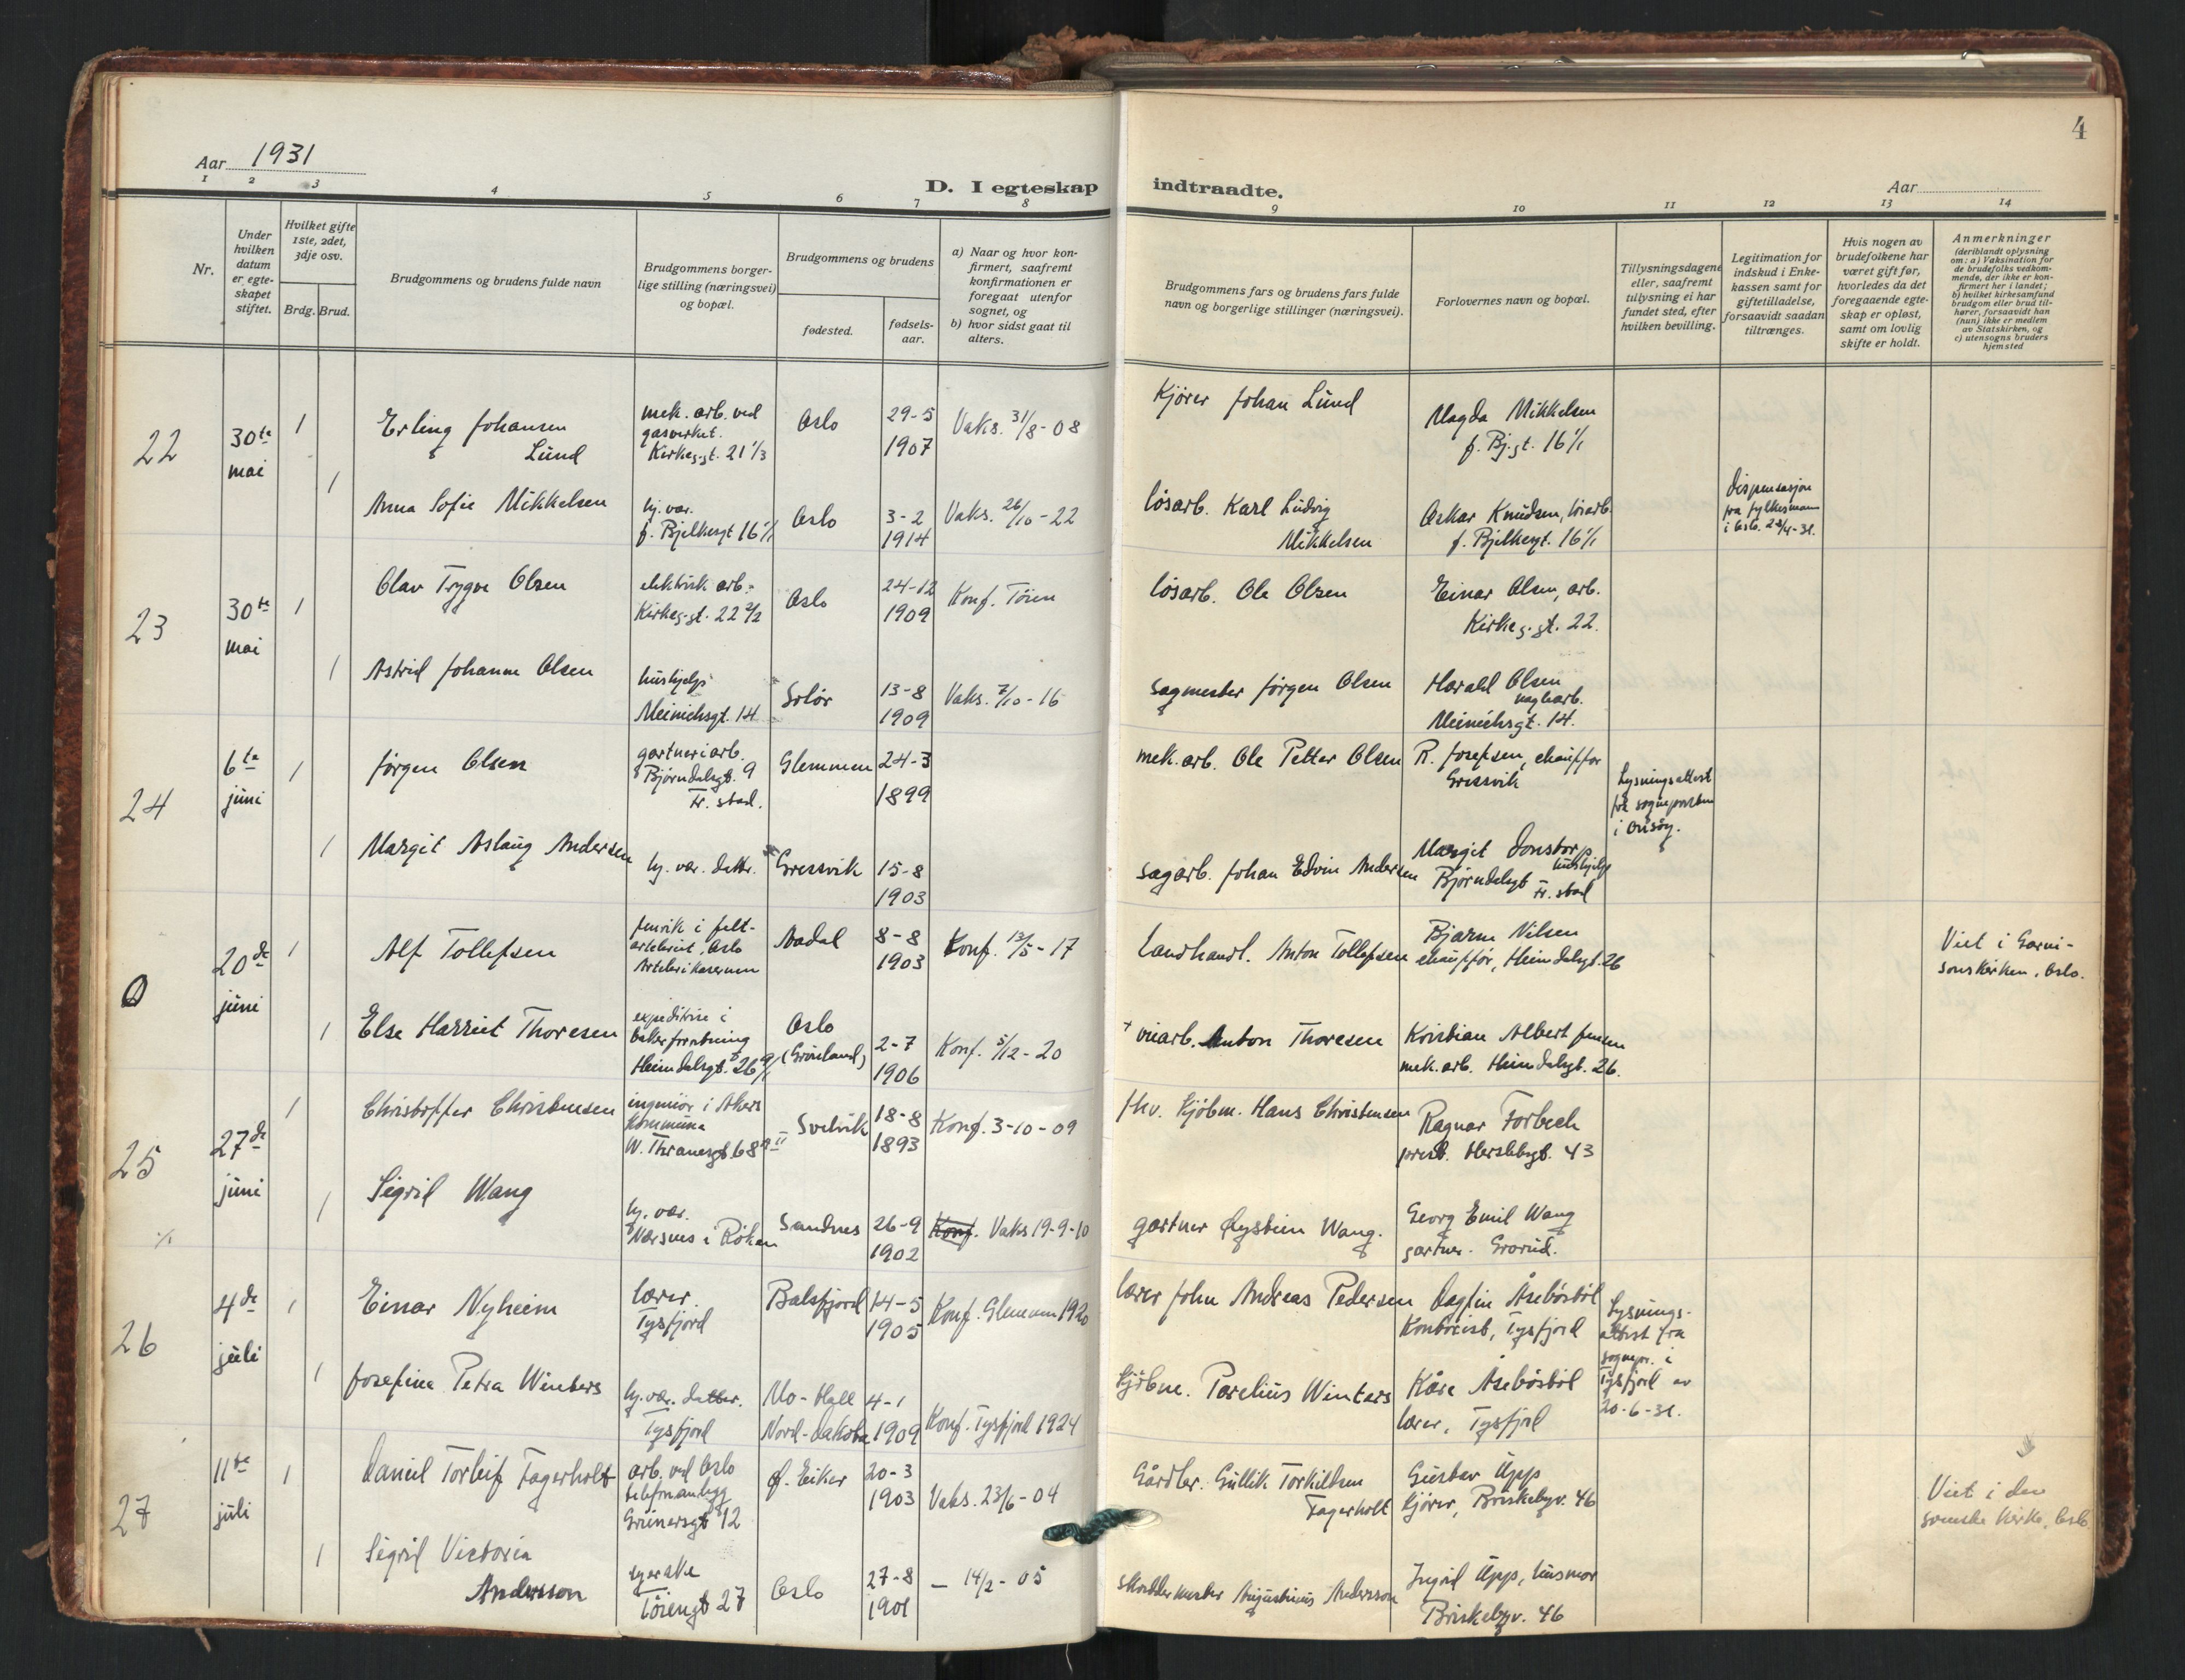 Aar 1931
D. I egteskap indtraadte.
Aar
4
1 2 3 4 5 6 7 8 9 10 11 12 13 14
Nr.
Under hvilken datum er egteskapet stiftet.
Hvilket gifte 1ste, 2det, 3dje osv.
Brdg. Brud.
Brudgommens og brudens fulde navn
Brudgommens borgerlige stilling (næringsvei) og bopæl.
Brudgommens og brudens
fødested.
fødselsaar.
a) Naar og hvor konfirmert, saafremt konfirmationen er foregaat utenfor sognet, og
b) hvor sidst gaat til alters.
Brudgommens fars og brudens fars fulde navn og borgerlige stillinger (næringsvei).
Forlovernes navn og bopæl.
Tillysningsdagene eller, saafremt tillysning ei har fundet sted, efter hvilken bevilling.
Legitimation for indskud i Enkekassen samt for giftetilladelse, forsaavidt saadan tiltrænges.
Hvis nogen av brudefolkene har været gift før, hvorledes da det foregaaende egteskap er opløst, samt om lovlig skifte er holdt.
Anmerkninger
(deriblandt oplysning om: a) Vaksination for de brudefolks vedkommende, der ikke er konfirmert her i landet;
b) hvilket kirkesamfund brudgom eller brud tilhører, forsaavidt han (hun) ikke er medlem av Statskirken, og
c) utensogns bruders hjemsted
22
30te mai
1
Erling Johansen Lund
mek. arb. ved gasverket.
Kirkeg.gt. 21 1/3
Oslo
29-5 1907
Vaks. 31/8-08
Kjører Johan Lund
Magda Mikkelsen
f. Bj.gt. 16 1/1
1
Anna Sofie Mikkelsen
hj. vær.
f. Bjelkesgt 16 1/1
Oslo
3-2 1914
Vaks. 26/10-22
løsarb. Karl Ludvig Mikkelsen
Oskar Knudsen, løsarb.
f. Bjelkesgt. 16 1/1
Dispensasjon
fra fylkesmann
i Oslo. 28/4-31.
23
30te mai
1
Olav Trygve Olsen
elektrisk arb.
Kirkeg.gt. 22 2/2
Oslo
24-12 1909
Konf. Tøien
løsarb. Ole Olsen
Einar Olsen, arb.
Kirkeg.gt. 22.
1
Astrid Johanne Olsen
hushjelp
Meinichsgt. 14
Solør
13-8 1909
Vaks. 7/10-16
sagmester Jørgen Olsen
Harald Olsen
Meinichsgt. 14.
24
6te juni
1
Jørgen Olsen
gartneriarb.
Bjørndalsgt. 9
Fr. stad.
Glemmen
24-3 1899
mek. arb. Ole Petter Olsen
R. Josefsen, chauffør
Gressvik
Lysningsattest
fra sognepresten
i Onsøy.
1
Margit Aslaug Andersen
hj. vær. datter.
Gressvik
15-8 1903
sagarb. Johan Edvin Andersen
Margit Donstorp
hushjelp
Bjørndalsgt Fr. stad
0
20de juni
1
Alf Tollefsen
fenrik i felt-
artileriet, Oslo
Artilerikasernen
Aadal
8-8 1903
Konf. 13/5-17
Landhandl. Anton Tollefsen
Bjarne Nilsen
chauffør, Heimdalsgt. 26
Viet i Garni-
sonskirken, Oslo.
1
Else Harriet Thoresen
expeditrise i
bakerforretning
Heimdalsgt. 26
Oslo (Grønland)
2-7 1906
Konf. 5/12-20
+ Anton Thoresen
Kristian Albert Jensen
mek. arb. Heimdalsgt. 26.
25
27de juni
1
Christoffer Christensen
ingeniør i Akers
Kommune
W. Thranesgt. 68 II
Svelvik
18-8 1893
Konf. 3-10-09
fhv. kjøbm. Hans Christensen
Ragnar Forbech
prest. Herslebsgt. 43
1
Sigrid Wang
hj. vær.
Nærsnes i Røken
Sandnes
26-9 1902
Konf. Vaks 19-9-10
gartner Øystein Wang.
Georg Emil Wang
gartner. Grorud.
26
4de juli
1
Einar Nyheim
lærer
Tysfjord
Balsfjord
14-5 1905
Konf. Glemmen 1920
lærer John Andreas Pedersen
Dagfin Åsebøstøl
Kontorist, Tysfjord
Lysnings-
attest fra
sognepr. i
Tysfjord av
20-6-31.
1
Josefine Petra Winters
hj. vær. datter.
Tysfjord
Mo-Hall
Nord-Dakota
4-1 1909
Konf. Tysfjord 1924
kjøbm. Parelius Winters
Kåre Åsebøstøl
lærer, Tysfjord
27
11te juli
1
Daniel Torleif Fagerholt
arb. ved Oslo
telefonanlegg
Grünersgt 12
Ø. Eiker
20-3 1903
Vaks. 23/6-04
Gårdbr. Gullik Torkildsen Fagerholt
Gustav Upp
kjører, Briskebyv. 46
Viet i den
svenske kirke, Oslo
1
Sigrid Victoria Andersson
syerske
Tøiengt 27
Oslo
27-8 1901
— 14/2-05
skredder mester Augustinius Andersson
Ingrid Upp, husmor
Briskebyv. 46